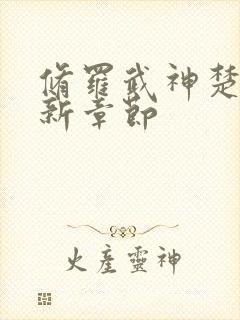 脩羅武神楚
新章節
火產靈神